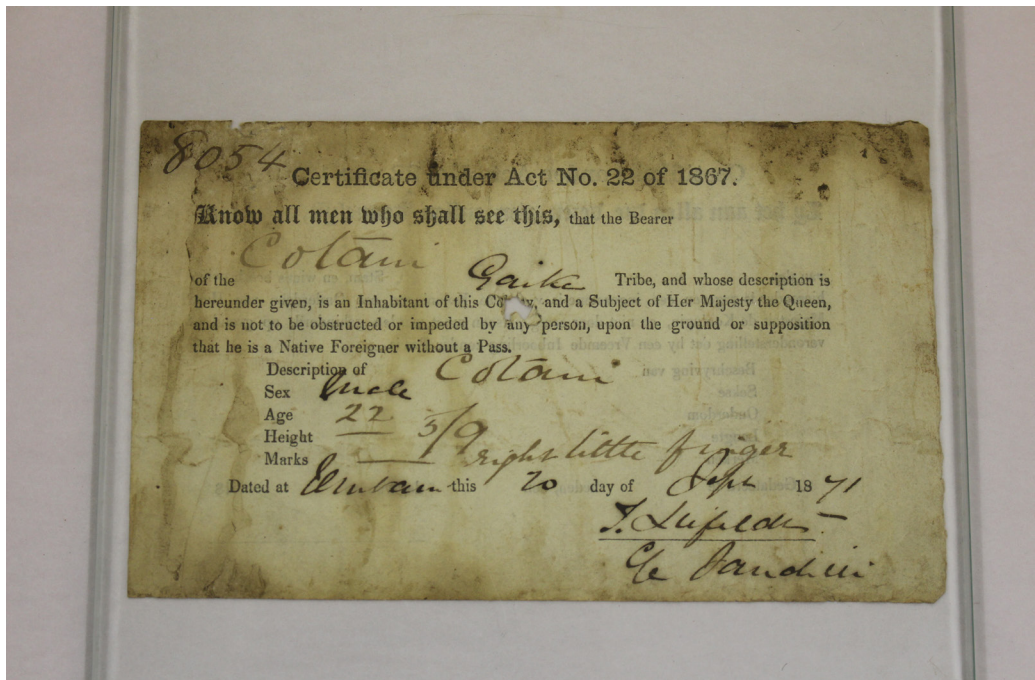 8054
Certificate under Act No. 22 of 1867.
Know all men who shall see this, that the Bearer
Cotani
of the Gaika Tribe, and whose description is
hereunder given, is an Inhabitant of this and a Subject of Her Majesty the Queen,
and is not to be obstructed or impeded by any person, upon the ground or supposition
that he is a Native Foreigner without a Pass.
Description of Cotani
Sex Male
Age 22
Height 5/9
Marks right little finger
Dated at this 20 day of Sept 1871